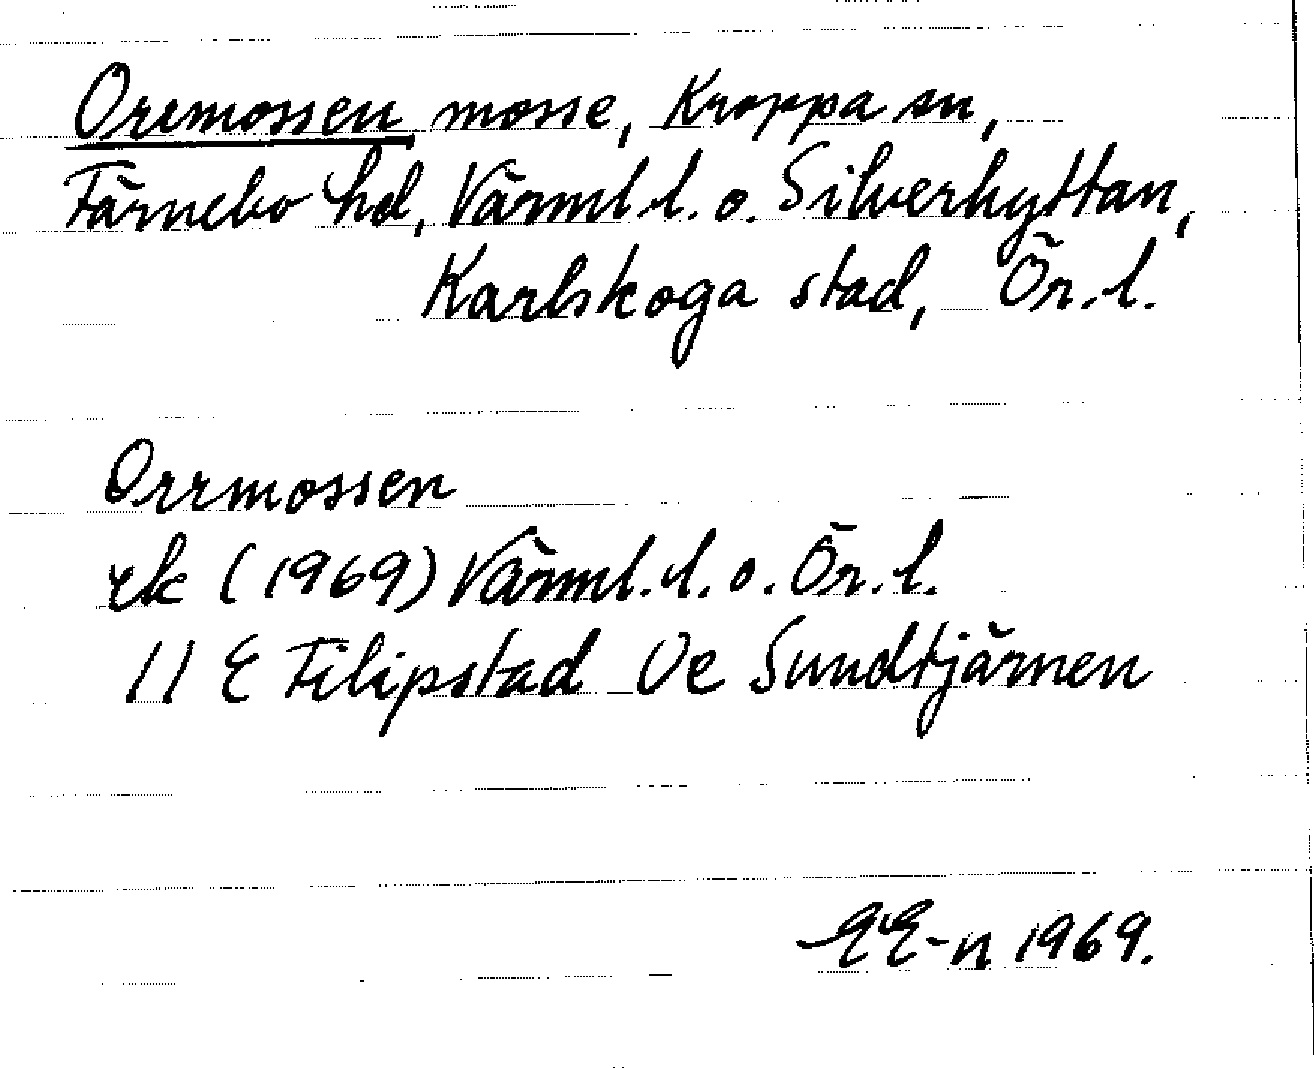 Orrmossen mosse, Kroppa sn,
Färnebo hd, Värml. l. o. Silverhyttan,
Karlskoga stad, Ör. l.
Orrmossen
rk (1969) Värml. l. o. Ör. l.
11 E Filipstad 0e Sundtjärnen
EE-n 1969.